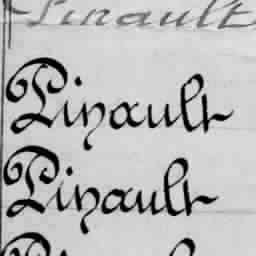 Pinault
Pinault
Pinault